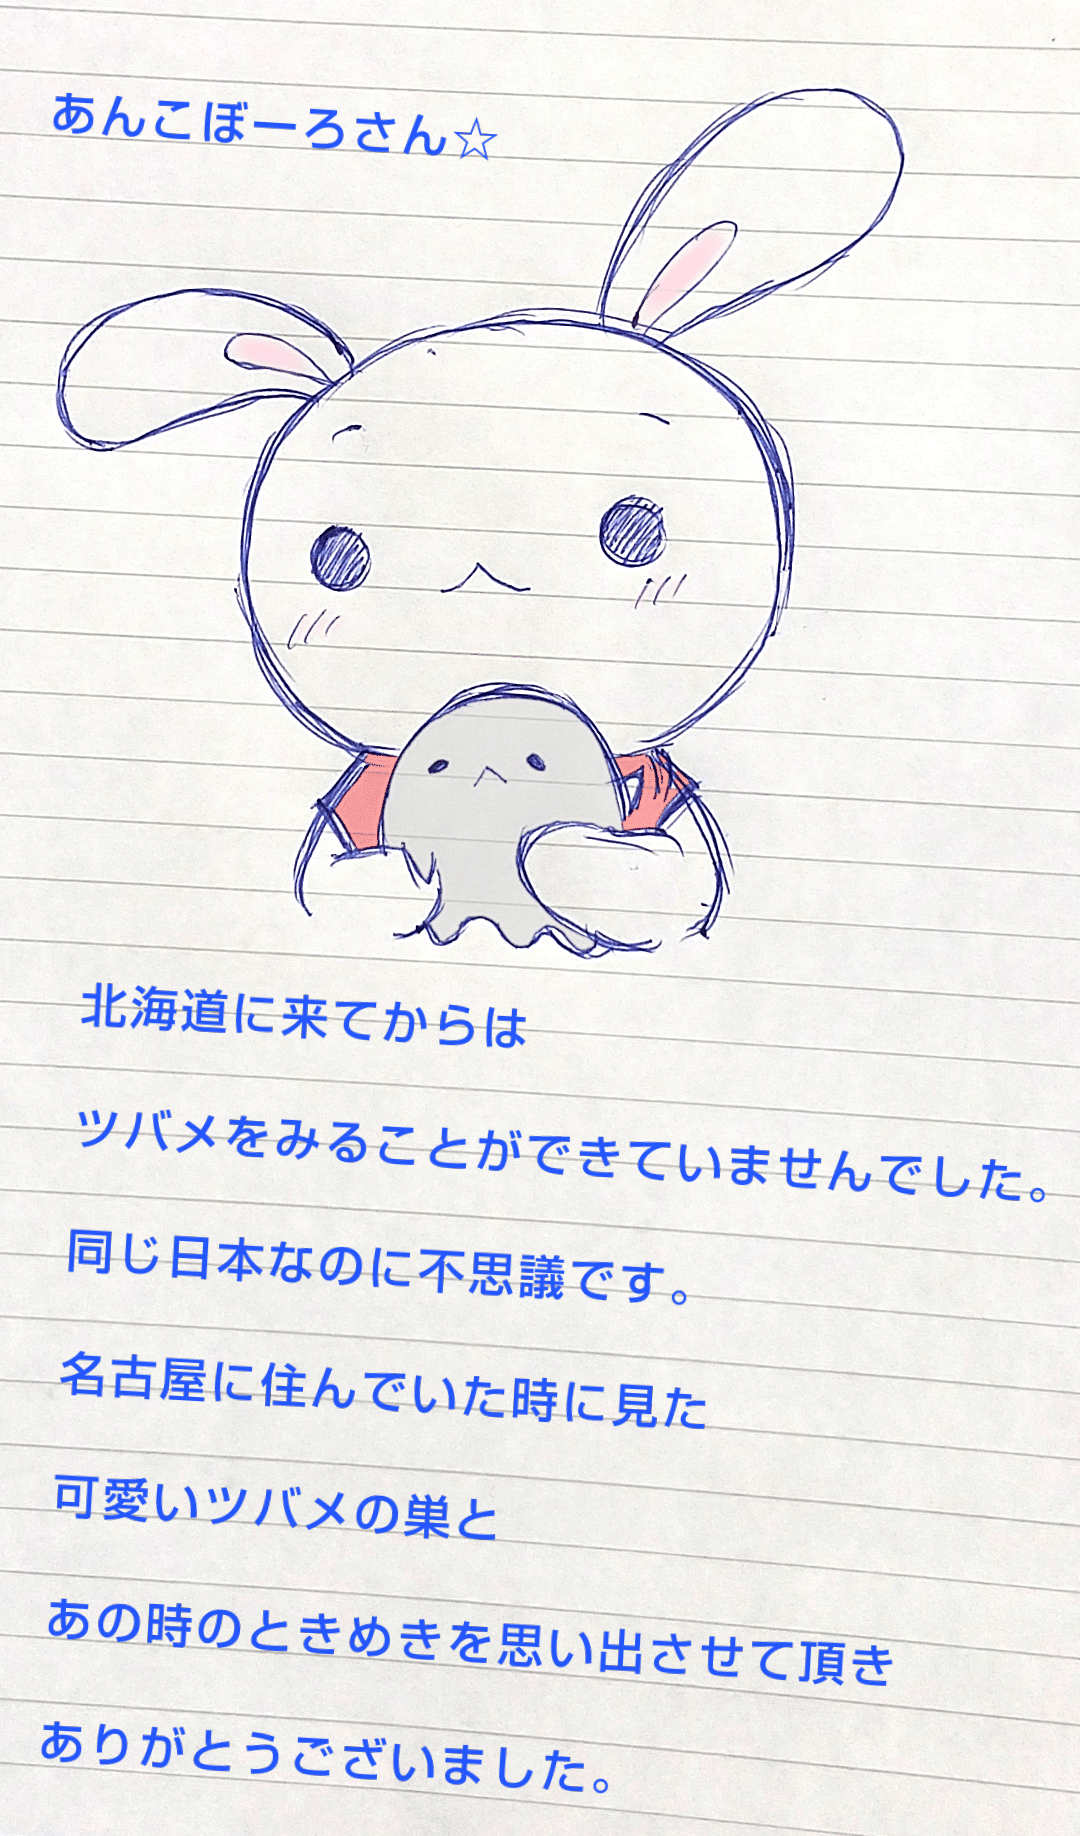 あんこぼーろさん☆
北海道に来てからは
ツバメをみることができていませんでした。
同じ日本なのに不思議です。
名古屋に住んでいた時に見た
可愛いツバメの巣と
あの時のときめきを思い出させて頂き
ありがとうございました。